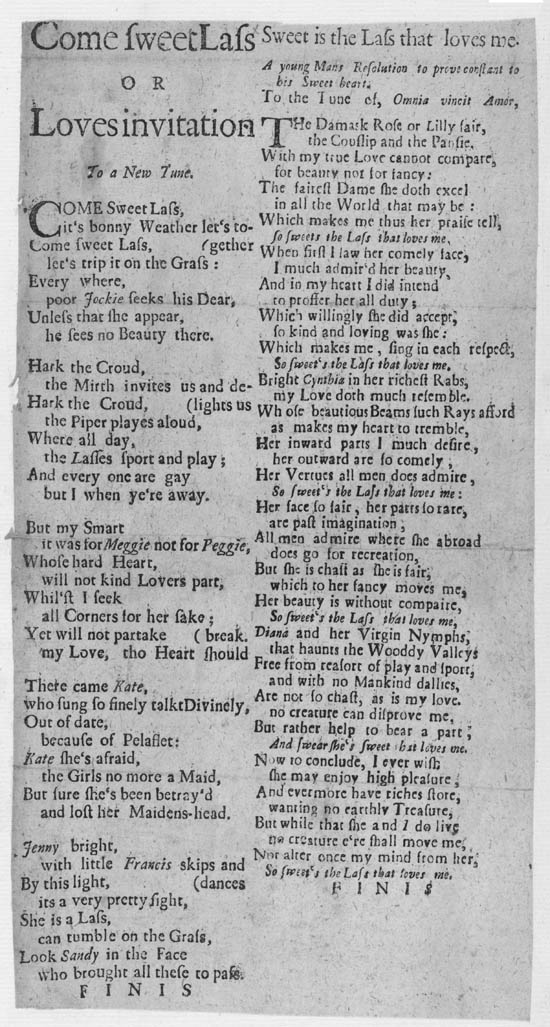 Come ſweet Laſs
O R
Loves invitation
To a New Tune.
COME Sweet Laſs,
it's bonny Weather let's to-
Come ſweet Laſs, (gether
let's trip it on the Graſs:
Every where,
poor Jockie ſeeks his Dear,
Unleſs that ſhe appear,
he ſees no Beauty there.
Hark the Croud,
the Mirth invites us and de-
Hark the Croud, (lights us
the Piper playes aloud,
Where all day,
the Laſſes ſport and play;
And every one are gay
but I when ye're away.
But my Smart
it was for Meggie not for Peggie,
Whoſe hard Heart,
will not kind Lovers part,
Whil'ſt I ſeek
all Corners for her ſake;
Yet will not partake ( break.
my Love, tho Heart ſhould
There came Kate,
who ſung ſo finely talkt Divinely,
Out of date,
becauſe of Pelaſlet:
Kate ſhe's afraid,
the Girls no more a Maid,
But ſure ſhe's been betray'd
and loſt her Maidens-head.
Jenny bright,
with little Francis skips and
By this light, (dances
its a very pretty ſight,
She is a Laſs,
can tumble on the Graſs,
Look Sandy in the Face
who brought all theſe to paſs.
F I N I S
Sweet is the Laſs that loves me.
A young Mans Reſolution to prove conſtant to
his Sweet heart.
To the Tune of, Omnia vincit Amor,
THe Damask Roſe or Lilly fair,
the Couſlip and the Panſie,
With my true Love cannot compare,
for beauty nor for fancy:
The faireſt Dame ſhe doth excel
in all the World that may be:
Which makes me thus her praiſe tell,
ſo ſweets the Laſs that loves me,
When firſt I ſaw her comely face,
I much admir'd her beauty,
And in my heart I did intend
to proffer her all duty;
Which willingly ſhe did accept,
ſo kind and loving was ſhe:
Which makes me, ſing in each reſpect,
So ſweet's the Laſs that loves me.
Bright Cynthia in her richeſt Rabs,
my Love doth much reſemble.
Whoſe beautious Beams ſuch Rays afford
as makes my heart to tremble,
Her inward parts I much deſire,
her outward are ſo comely,
Her Vertues all men does admire,
So ſweet's the Laſs that loves me:
Her face ſo fair, her parts ſo rare,
are paſt imagination;
All men admire where ſhe abroad
does go for recreation,
But ſhe is chaſt as ſhe is fair,
which to her fancy moves me,
Her beauty is without compaire,
So ſweet's the Laſs that loves me,
Diana and her Virgin Nymphs,
that haunts the Wooddy Valleys
Free from reaſort of play and ſport,
and with no Mankind dallies,
Are not ſo chaſt, as is my love.
no creature can diſprove me,
But rather help to bear a part;
And ſwear ſhe's ſweet that loves me.
Now to conclude, I ever wiſh
ſhe may enjoy high pleaſure,
And evermore have riches ſtore,
wanting no earthly Treaſure,
But while that ſhe and I do live
no creature e're ſhall move me,
Nor alter once my mind from her,
So ſweet's the Laſs that loves me.
F I N I S